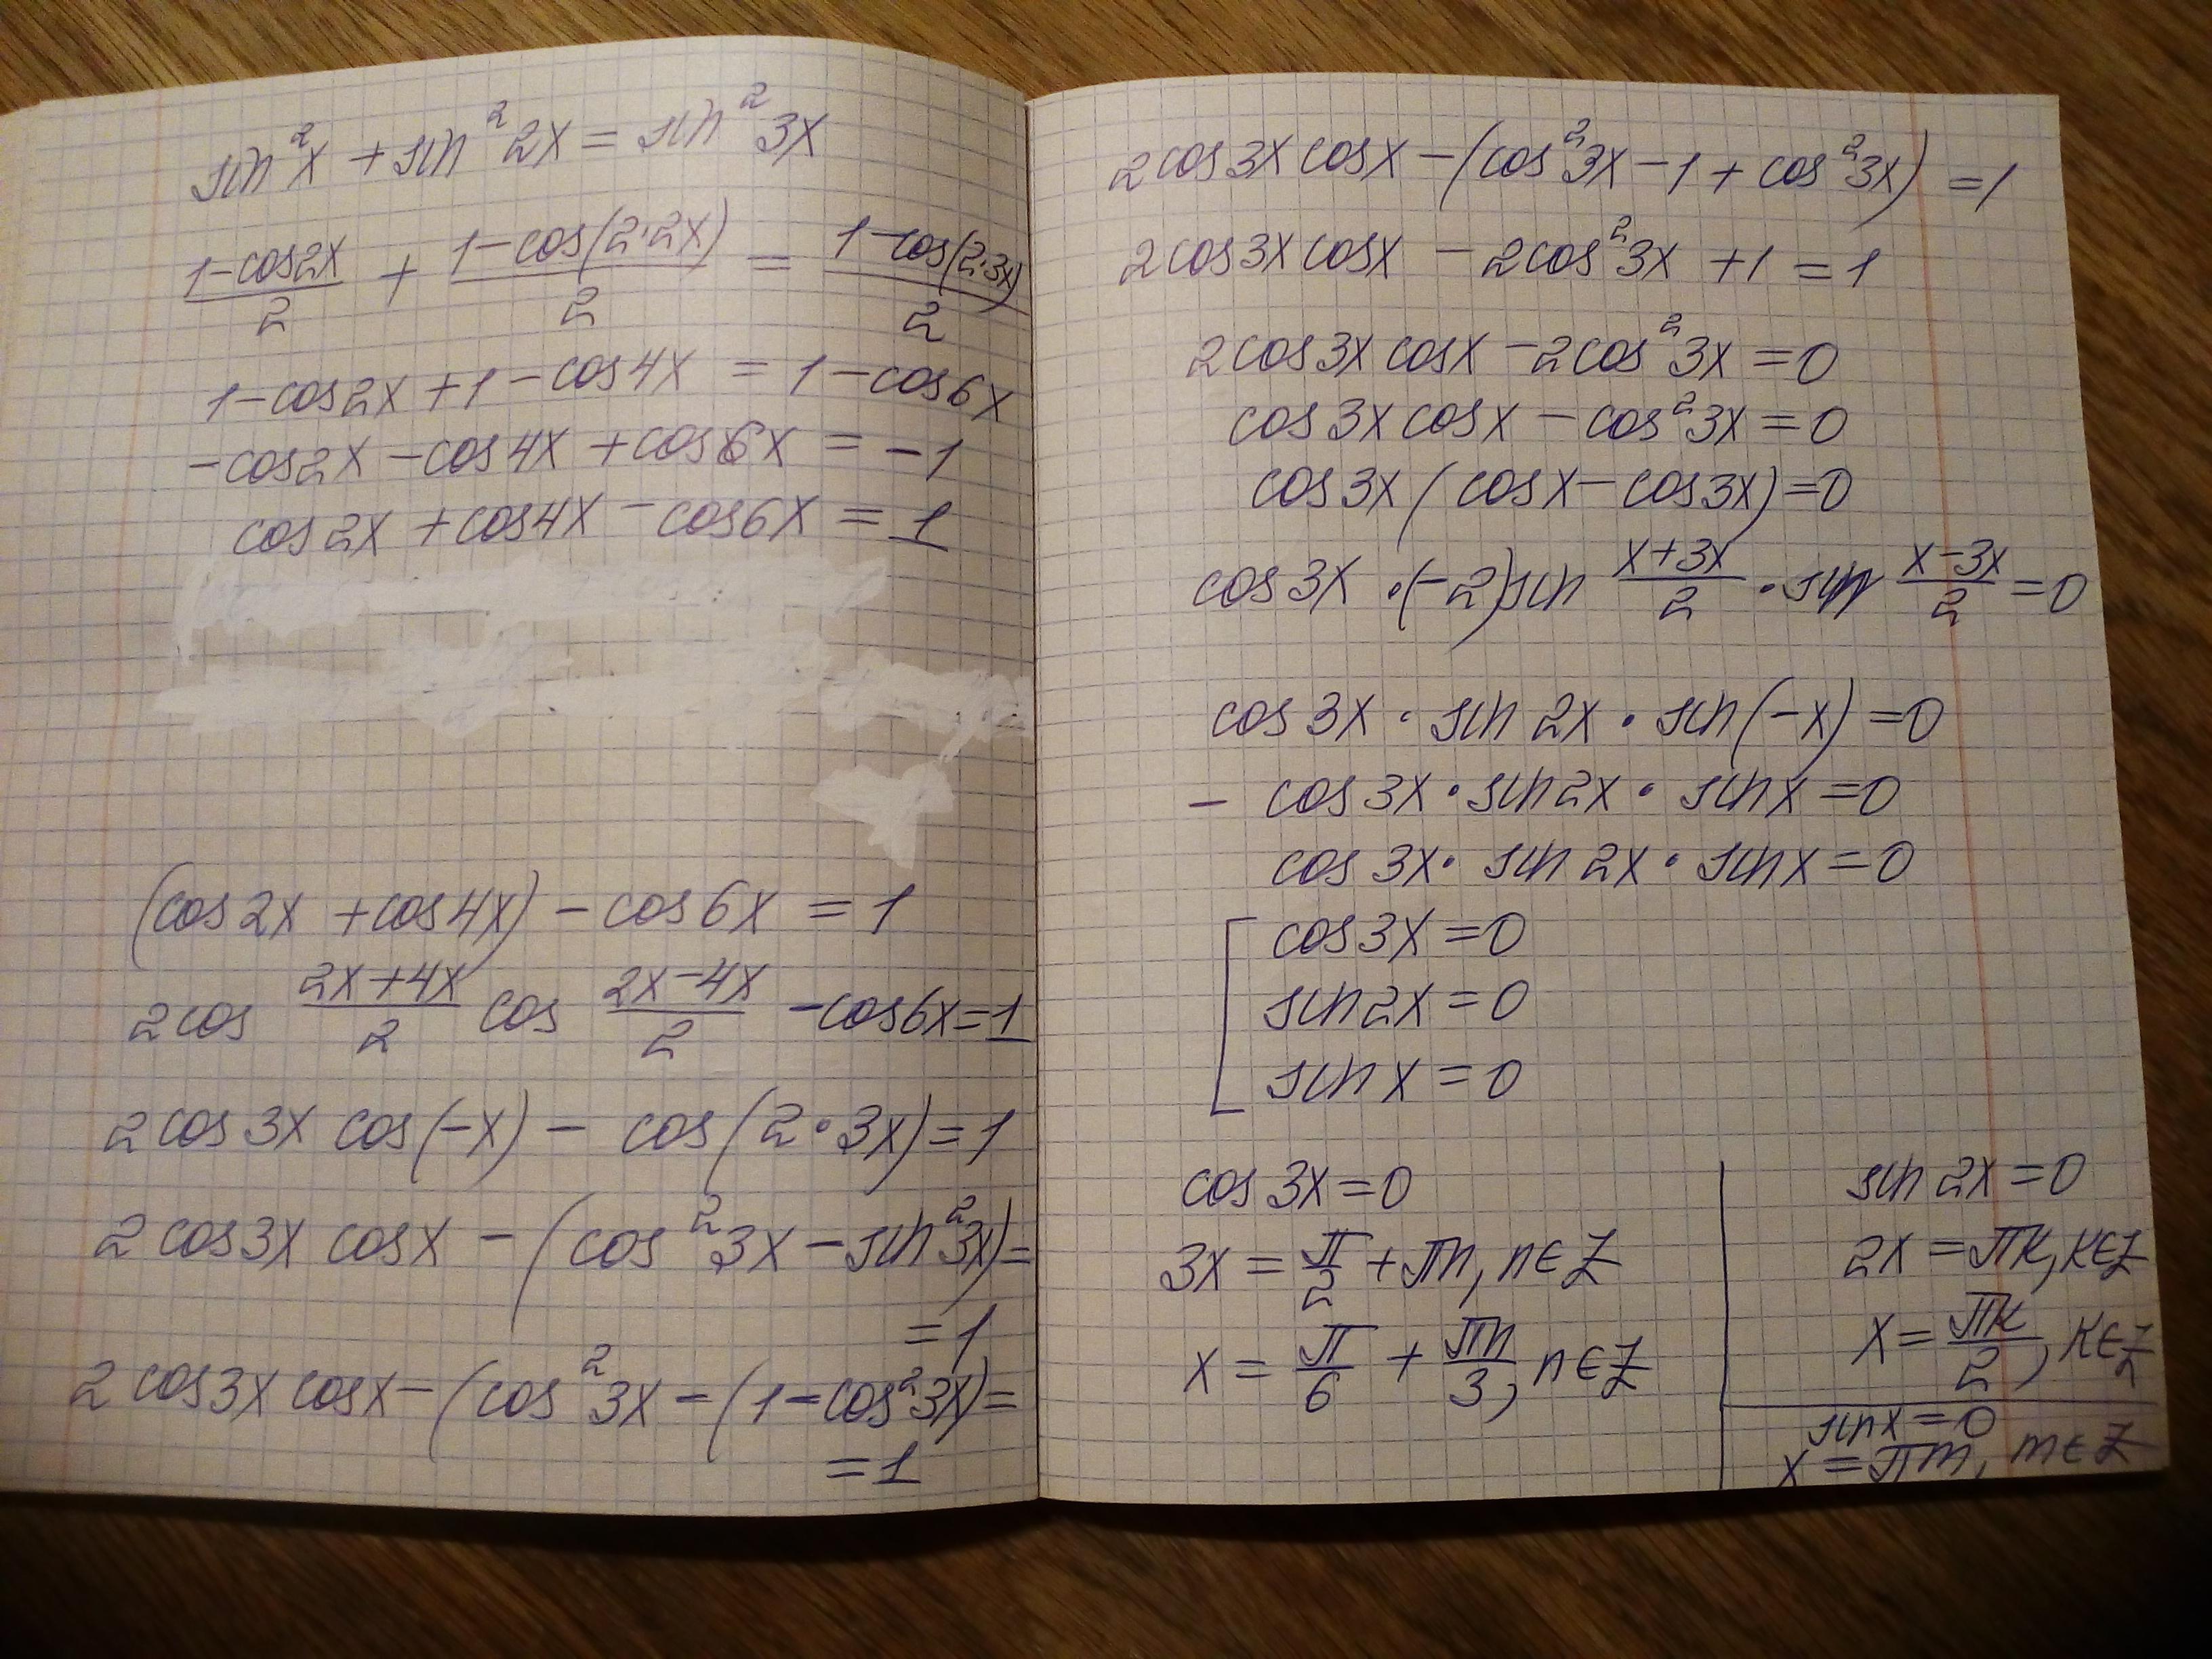 sin²x + sin²2x = sin²3x
(1-cos2x)/2 + (1-cos(2·2x))/2 = (1-cos(2·3x))/2
1-cos2x+1-cos4x = 1-cos6x
-cos2x-cos4x+cos6x = -1
cos2x+cos4x-cos6x = 1
(cos2x+cos4x)-cos6x = 1
2cos (2x+4x)/2 cos (2x-4x)/2 -cos6x=1
2cos3x cos(-x) - cos(2·3x)=1
2cos3x cosx - (cos²3x-sin²3x)=
=1
2cos3x cosx-(cos²3x-(1-cos²3x)=
=1
2cos3x cosx-(cos²3x-1+cos²3x)=1
2cos3x cosx - 2cos²3x +1 = 1
2cos3x cosx-2cos²3x=0
cos3x cosx-cos²3x=0
cos3x(cosx-cos3x)=0
cos3x·(-2)sin (x+3x)/2 ·sin (x-3x)/2 =0
cos3x·sin2x·sin(-x)=0
- cos3x·sin2x·sinx=0
cos3x·sin2x·sinx=0
cos3x=0
sin2x=0
sinx=0
cos3x=0
3x = π/2 + πn, n∈Z
x = π/6 + πn/3, n∈Z
sin2x=0
2x=πк, к∈Z
x= πк/2, к∈Z
sinx=0
x=πm, m∈Z